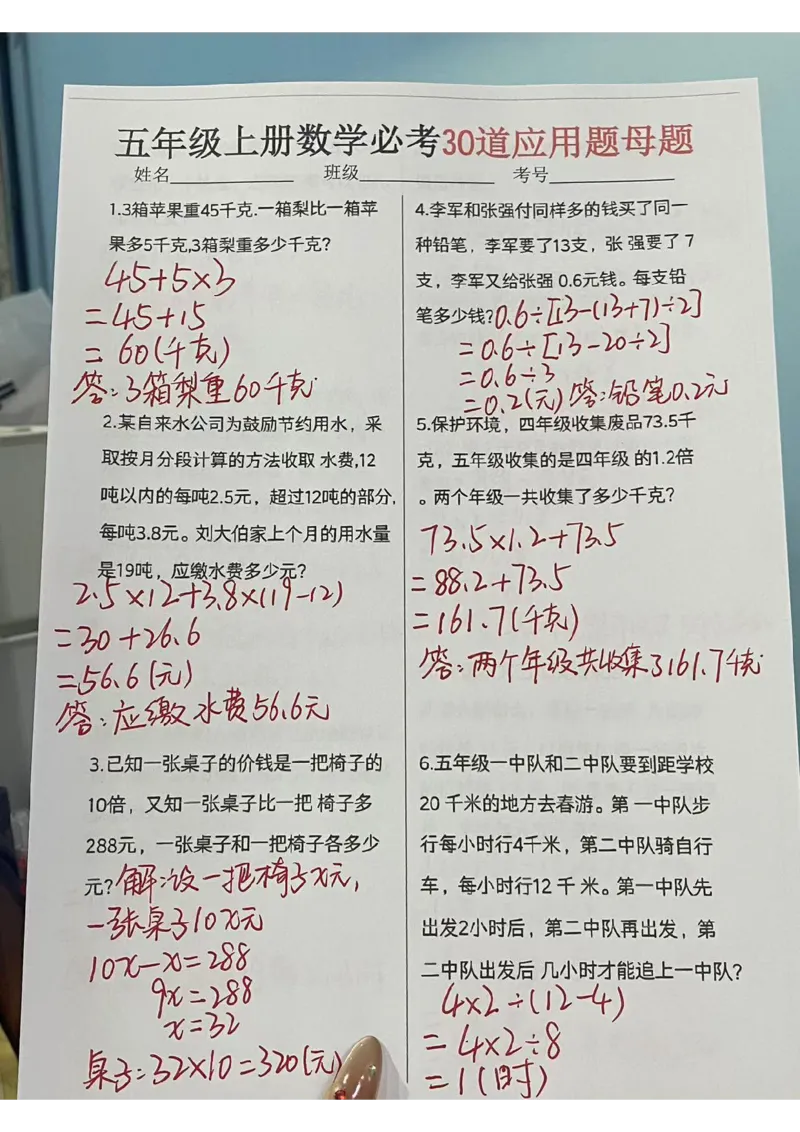 五年级上册数学必考30道应用题母题
姓名 班级 考号
1.3箱苹果重45千克.一箱梨比一箱苹
果多5千克,3箱梨重多少千克?
45+5×3
=45+15
=60(千克)
答:3箱梨重60千克
2.某自来水公司为鼓励节约用水，采
取按月分段计算的方法收取 水费,12
吨以内的每吨2.5元，超过12吨的部分,
每吨3.8元。刘大伯家上个月的用水量
是19吨，应缴水费多少元?
2.5×12+3.8×(19-12)
=30+26.6
=56.6(元)
答:应缴水费56.6元
3.已知一张桌子的价钱是一把椅子的
10倍，又知一张桌子比一把 椅子多
288元，一张桌子和一把椅子各多少
元?解:设一把椅子x元,
一张桌子10x元
10x-x=288
9x=288
x=32
桌子:32×10=320(元)
4.李军和张强付同样多的钱买了同一
种铅笔，李军要了13支，张 强要了 7
支，李军又给张强 0.6元钱。每支铅
笔多少钱?0.6÷[13-(13+7)÷2]
=0.6÷[13-20÷2]
=0.6÷3
=0.2(元) 答:铅笔0.2元
5.保护环境，四年级收集废品73.5千
克，五年级收集的是四年级 的1.2倍
。两个年级一共收集了多少千克?
73.5×1.2+73.5
=88.2+73.5
=161.7(千克)
答:两个年级共收集了161.7千克
6.五年级一中队和二中队要到距学校
20 千米的地方去春游。第 一中队步
行每小时行4千米，第二中队骑自行
车，每小时行12 千 米。第一中队先
出发2小时后，第二中队再出发，第
二中队出发后 几小时才能追上一中队?
4×2÷(12-4)
=4×2÷8
=1(时)